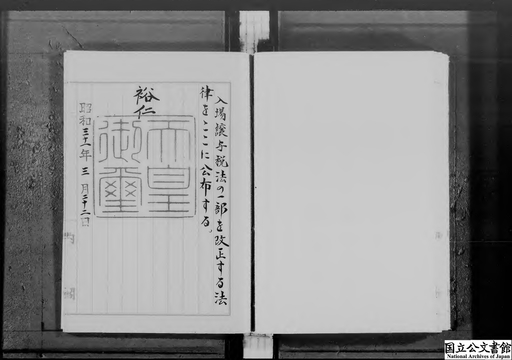 入場譲与税法の一部を改正する法
律をここに公布する。
裕仁
天皇
御璽
昭和三十一年三月二十二日
国立公文書館
National Archives of Japan